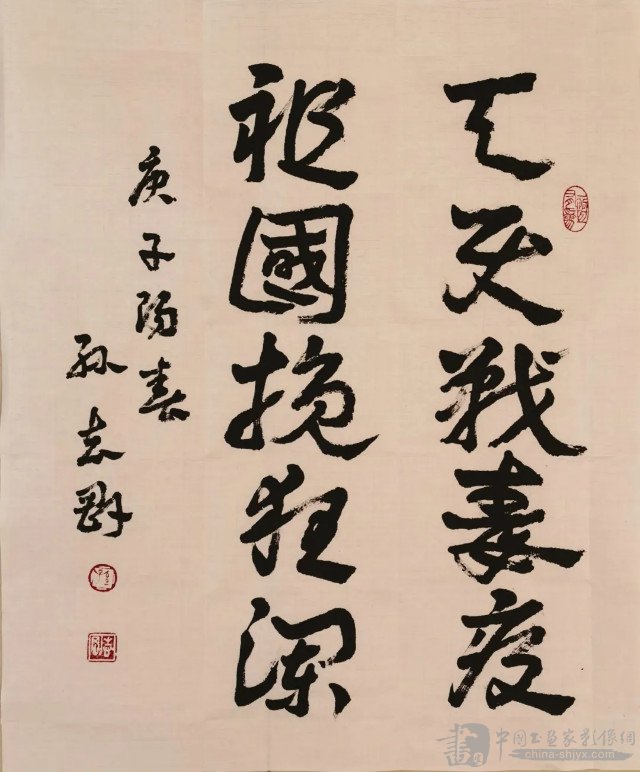 天灾戰毒疫
祖國挽狂瀾
庚子陽春
孫志剛
中國书画家影像網
china-shjyx.com